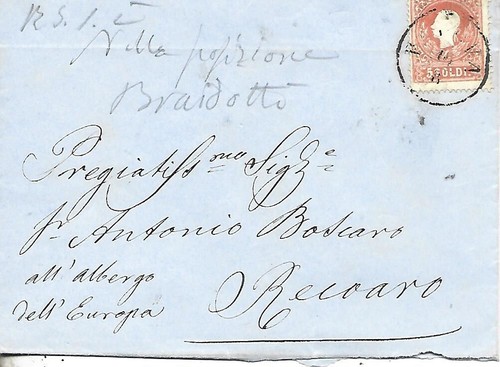 R S. 1. è
Nella posizione
Braidotti
5 SOLDI
Pregiatiss.mo Sig.re
Antonio Boscaro
all'albergo
dell'Europa
Recoaro